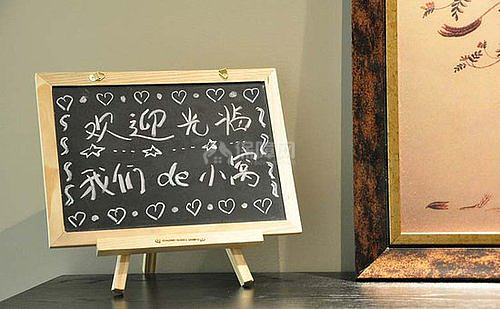 欢迎光临
我们de小窝